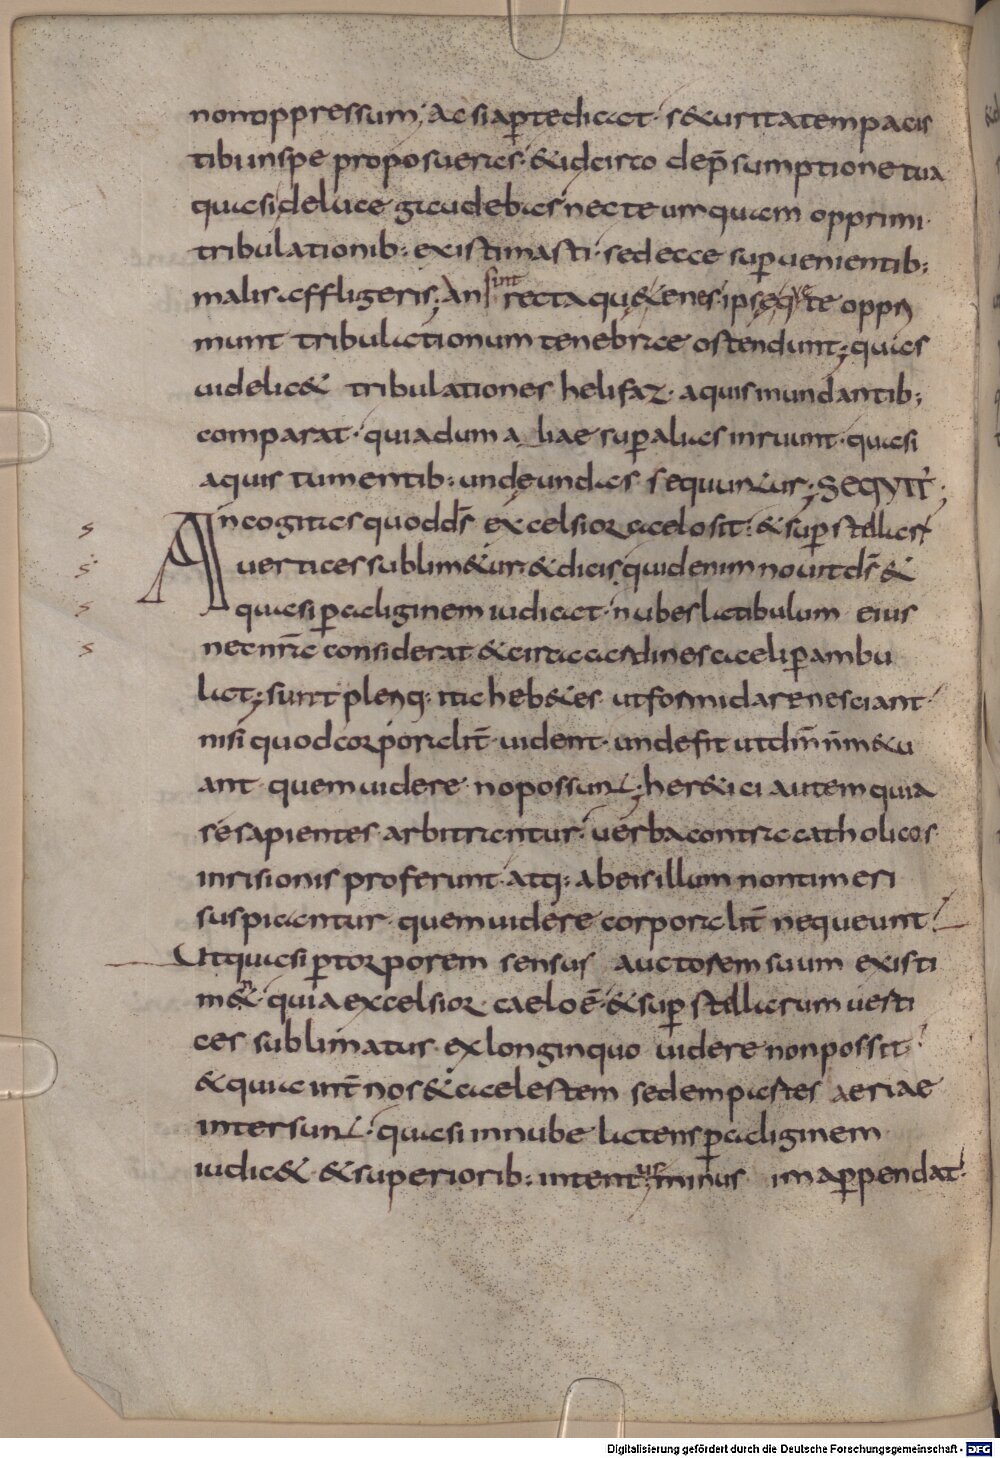 nonoppressum; ac si aptediceret· s&uritatem pacis
tibi inspe proposueras· &idcirco depsumptione tua
quasi deluce gaudebas nec te umquam opprimi·
tribulationib: existimasti· sed ecce sup uenientib;
malis affligeris; An sint recta quę&enes· ipseq ue te oppri
munt tribulationum tenebrae ostendunt; quas
uidelic& tribulationes helifaz· aquis inundantib;
comparat· quia dum aliae sup alias inruunt· quasi
aquis tumentib: undę undas sequuntur; SEQVIT̅;
An cogitas quod ds̅ excelsior caelo sit· & sup stellas
s
uertices sublim&ur· & dicis quid enim nouit ds̅ &
s
quasi p caliginem iudicat· nubes latibulum eius
s
nec nr̅a considerat & circa cardines caeli pambu
s
lat; sunt pleriq: ita heb&es· ut formidare nesciant
nisi quod corporalit̅ uident· unde fit ut dm̅ n̅ m&u
ant· quem uidere no possunt; her&ici autem quia
se sapientes arbitrantur· uerba contra catholicos
inrisionis proferunt· atq: ab eis illum non timeri
suspicantur· quem uidere corporalit̅ nequeunt·
Ut quasi ptorporem sensus auctorem suum existi
m&n· quia excelsior caelo ē· & sup stellarum uerti
ces sublimatur· ex longinquo uidere non possit·
& quia int̅ nos & caelestem sedem partes aeriae
intersunt· quasi in nube latens p caliginem
iudic& & superiorib: intentus minus ima ppendat·
Digitalisierung gefördert durch die Deutsche Forschungsgemeinschaft - DFG